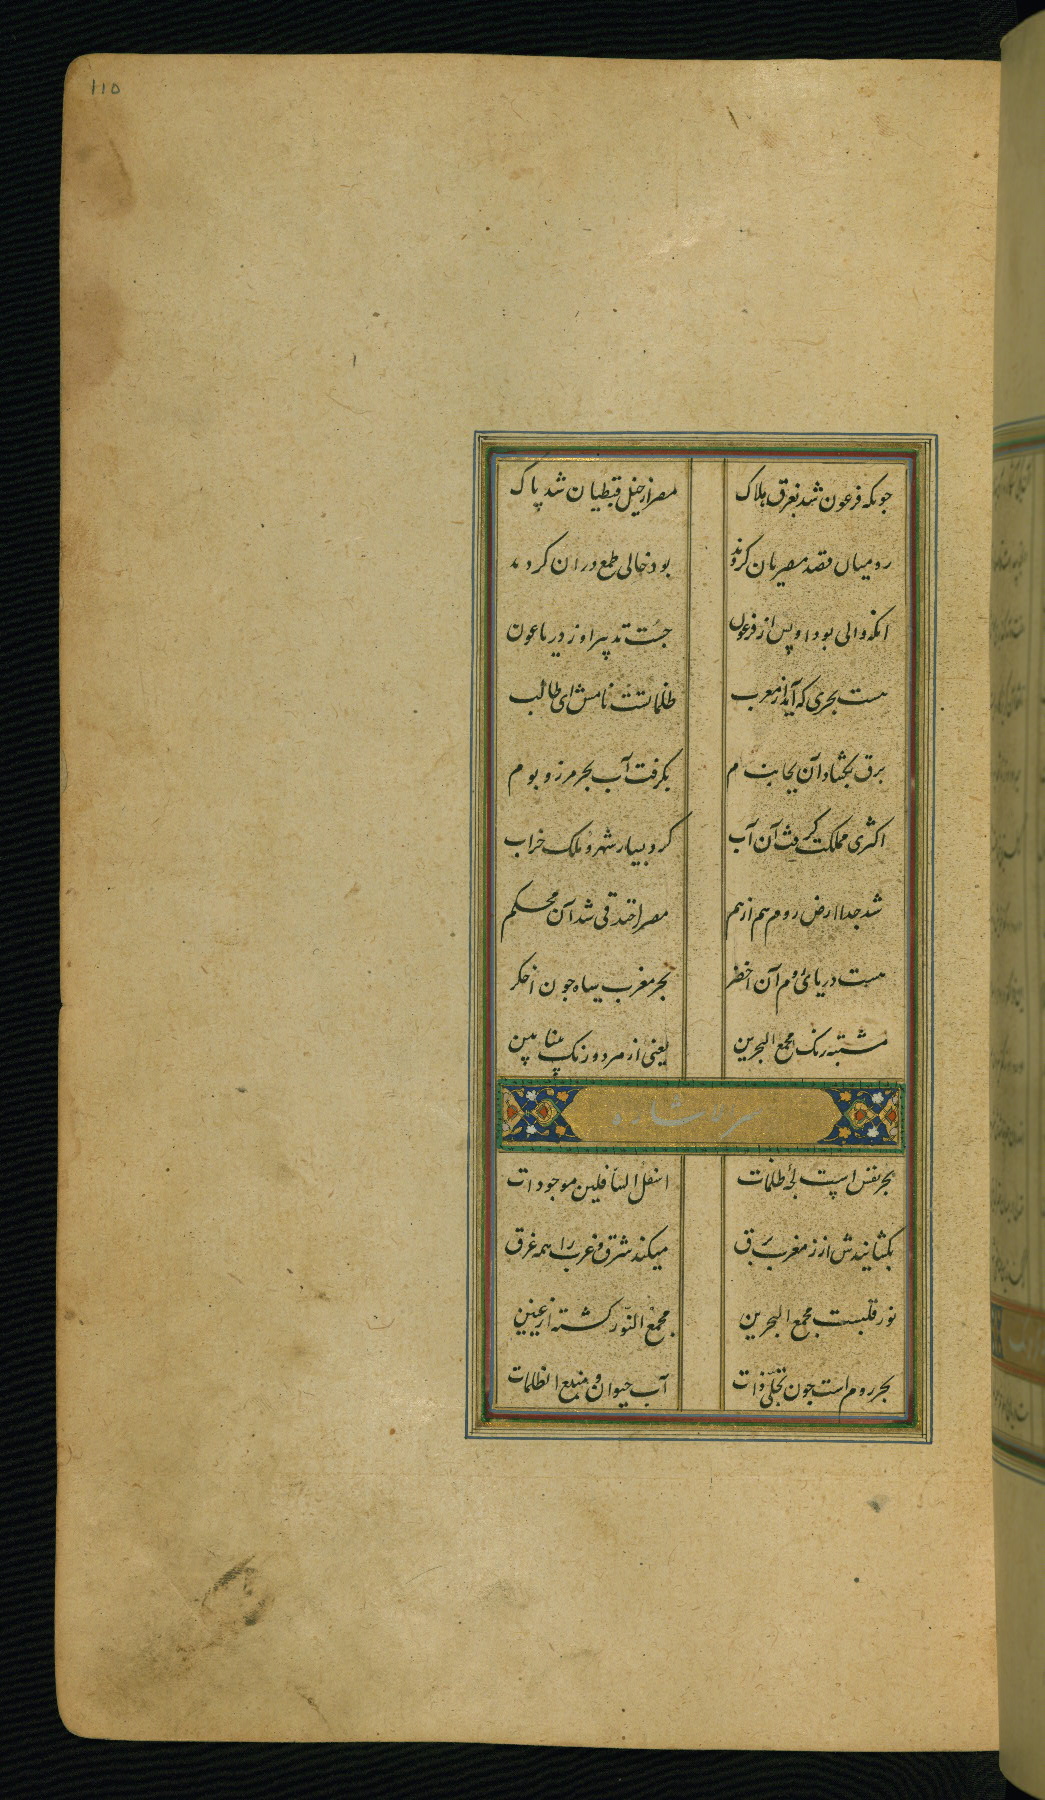 110
چونکه فرعون شد بغرق هلاک مصر از خیل قبطیان شد پاک
رومیان قصد مصریان کردند بود خالی طمع در ان کردند
انکه والی بود او پس از فرعون جست تدبیر او ز دریا عون
هست بحری که آید از مغرب ظلماتست نامش ای طالب
برق بکشاد آن بجانب م بکرفت آب بحر مرز و بوم
اکثری مملکت کرفت آن آب کرد بسیار شهر و ملک خراب
شد جدا ارض روم هم از هم مصر را خندقی شد آن محکم
هست دریای روم آن اخضر بحر مغرب سیاه چون اخکر
مشتبه رنک مجمع البحرین یعنی از هر دو رنک بین
سر اشاره
بحر نفس است لجۀ ظلمات اسفل السافلین موجودات
بکشانیدش ار ز مغرب برق میکند شرق و غرب را همه غرق
نور قلبست مجمع البحرین مجمع النور کشته از عینین
بحر روم است چون تجلی ذات آب حیوان و منبع الظلمات